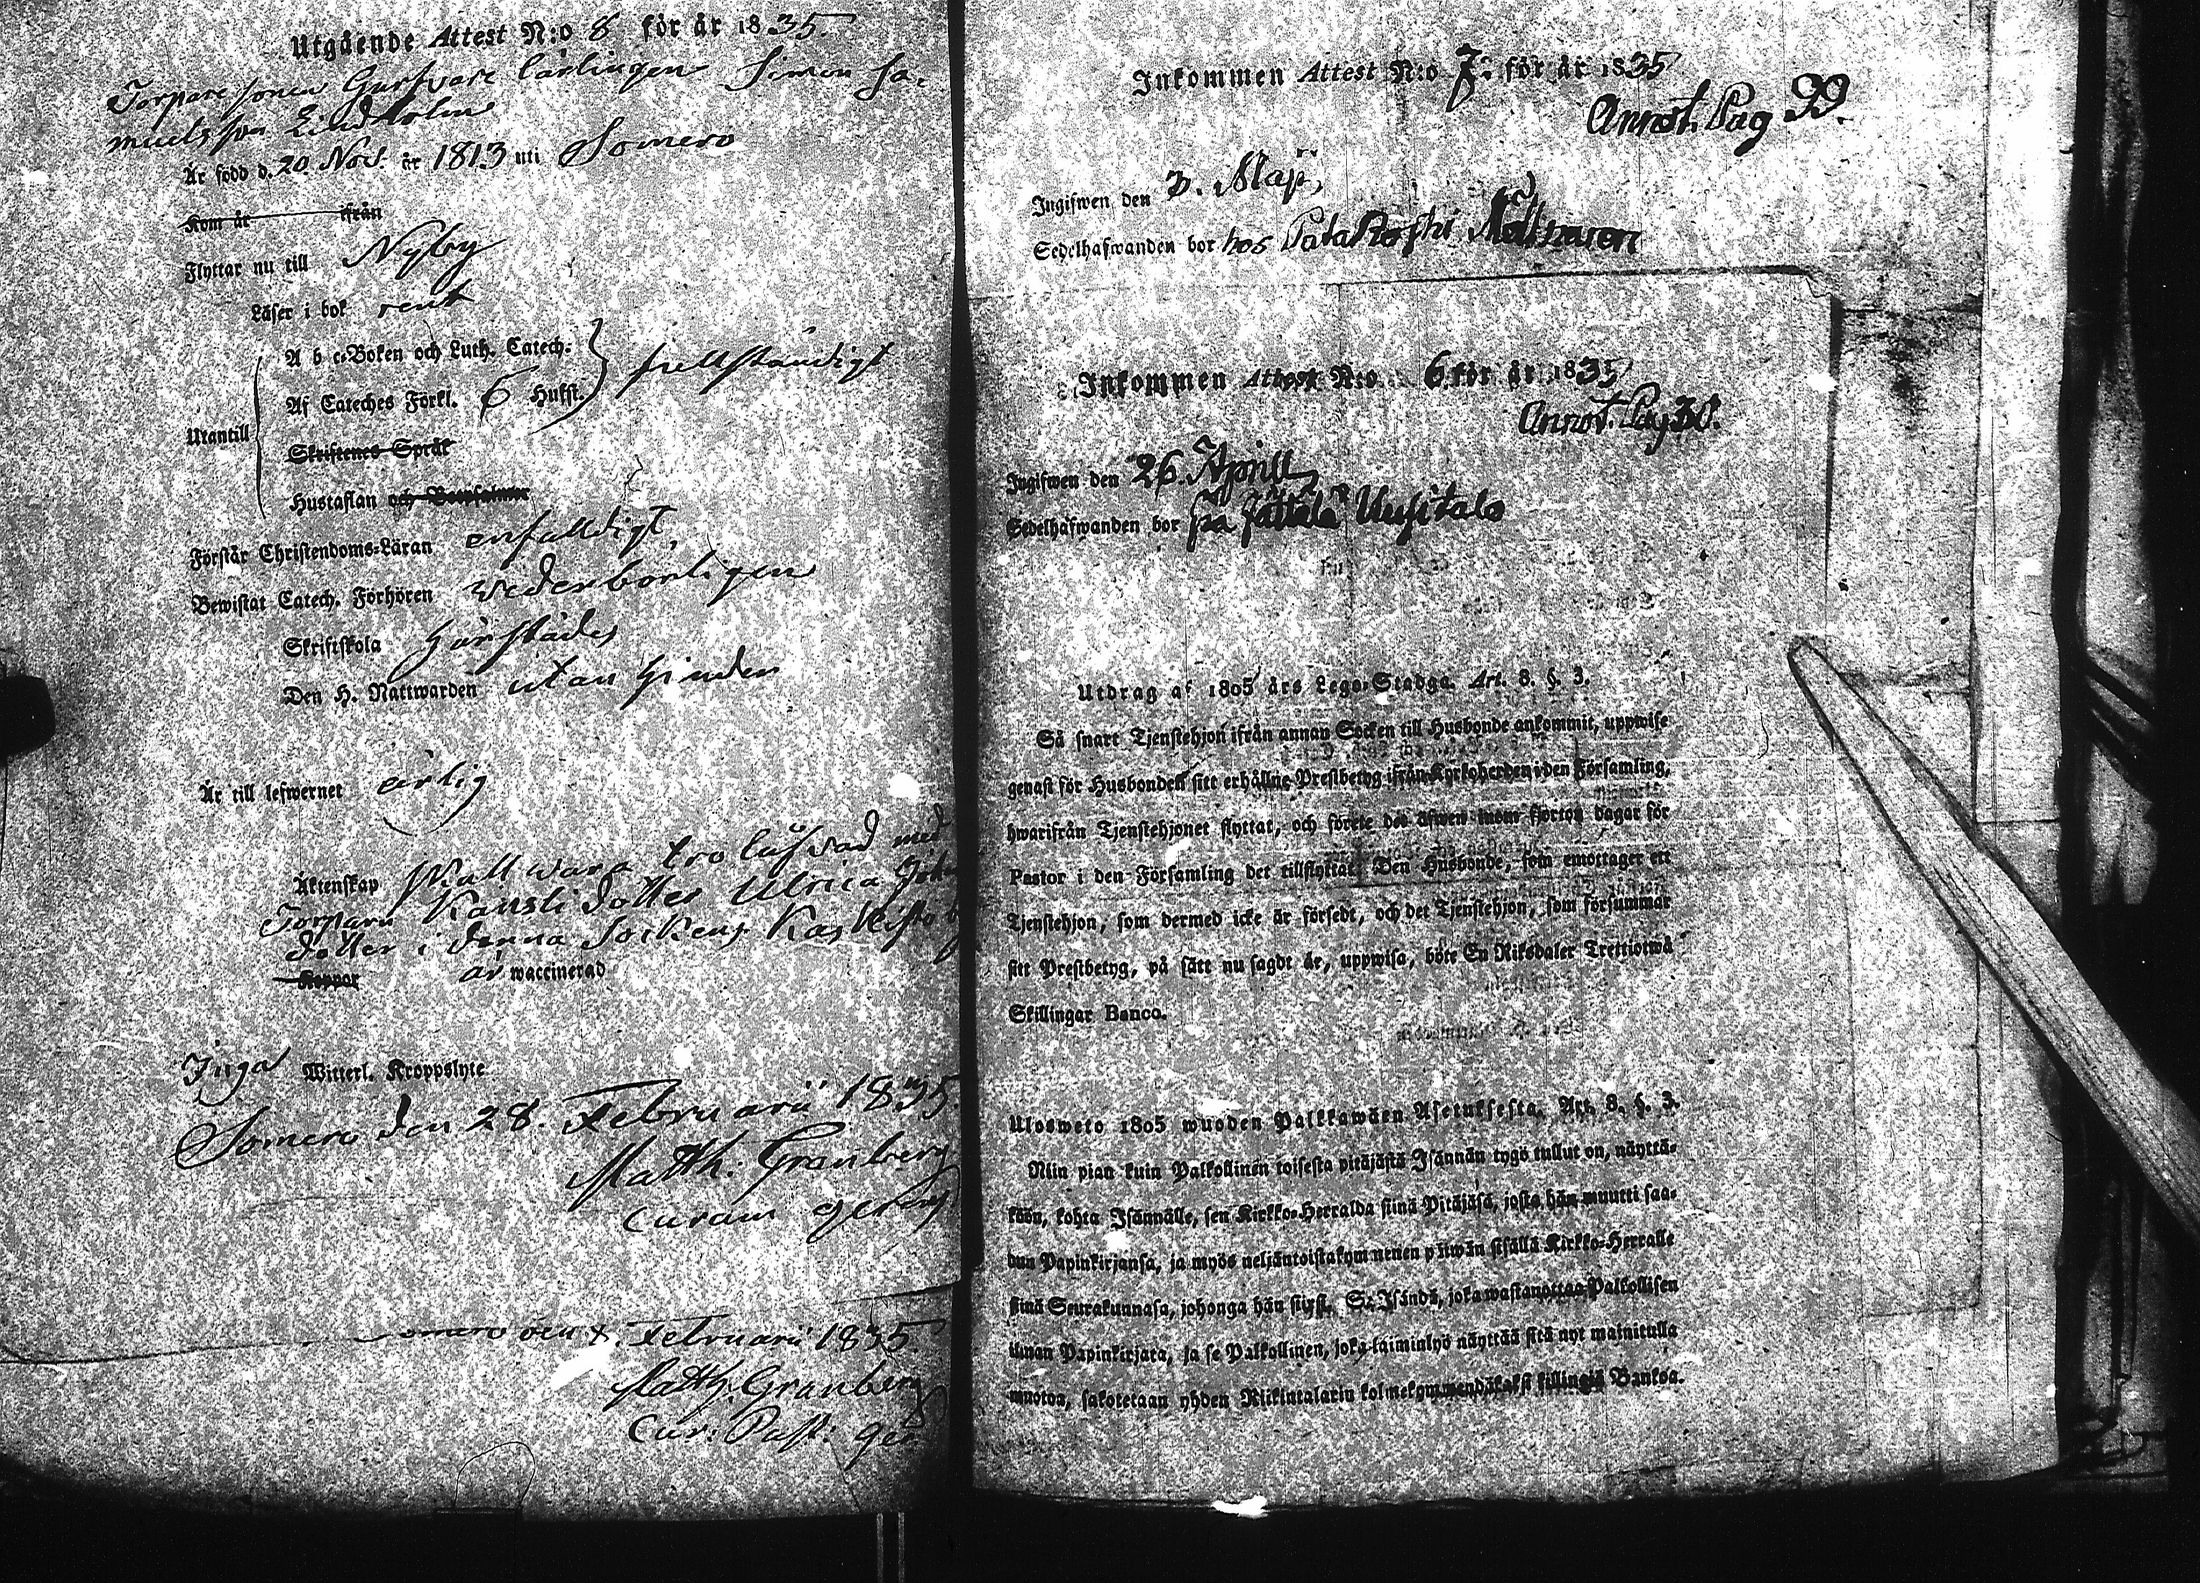 Utgående Attest N:o 8 för år 1835.
Torpare sonen Garfvare Lärlingen Simon Sa-
muelsson Lindholm
Är född d. 20 Nov. år 1813 uti Somero
Kom år ifrån
Flyttar nu till Nyby
Läser i bok rent
A b c-Boken och Luth. Catech.
Af Cateches Förkl. 6 Hufst. fullständigt
Utantill
Skriftenes Språk
Hustaflan och
Förstår Christendoms-Läran enfaldigt,
Bewistat Catech. Förhören wederbörligen
Skriftskola härstädes
Den H. Nattwarden utan hinder
Är till lefwernet ärlig
Äktenskap skall vara trolofvad med
Torpare dotter Ulrica
dotter i denna Sockens
Koppor är waccinerad
Inga Witterl. Kroppslyte
Somero den 28. Februarii 1835.
Matth. Granberg
curam gerens
omero den Februarii 1835.
Matth. Granberg
Cur: Past: ger.
Inkommen Attest N:o 7. för år 1835
Annot. Pag 99.
Ingifwen den 3. Maji,
Sedelhafwanden bor hos
Inkommen Attest N:o 6 för år 1835
Annot. Pag 30.
Ingifwen den 26. Aprill
Sedelhafwanden bor Uusitalo
Utdrag af 1805 års Lego-Stadga. Art. 8. §. 3.
Så snart Tjenstehjon ifrån annan Socken till Husbonde ankommit, uppwise
genast för Husbonden sitt erhållne Prestbetyg ifrån Kyrkoherden i den Församling,
hwarifrån Tjenstehjonet flyttat, och förete det äfwen inom fjorton dagar för
Pastor i den Församling det tillflyttat. Den Husbonde, som emottager ett
Tjenstehjon, som dermed icke är försedt, och det Tjenstehjon, som försummar
sitt Prestbetyg, på sätt nu sagdt är, uppwisa, böte En Riksdaler Trettiotwå
Skillingar Banco.
Ulosweto 1805 wuoden Palkkawäen Asetuksesta. Art. 8. §. 3.
Niin pian kuin Palkollinen toisesta pitäjästä Isännän tygö tullut on, näyttä-
köön, kohta Isännälle, sen Kirkko-Herralda siinä Pitäjäsä, josta hän muutti saa-
dun Papinkirjansa, ja myös neljäntoistakymmenen päiwän sisällä Kirkko-Herralle
siinä Seurakunnasa, johonga hän siirsi. Se Isändä, joka wastanottaa Palkollisen
ilman Papinkirjata, ja se Palkollinen, joka laiminlyö näyttää sitä nyt mainitulla
muotoa, sakotetaan yhden Riikintalarin kolmekymmendäkaksi killingiä Bankoa.